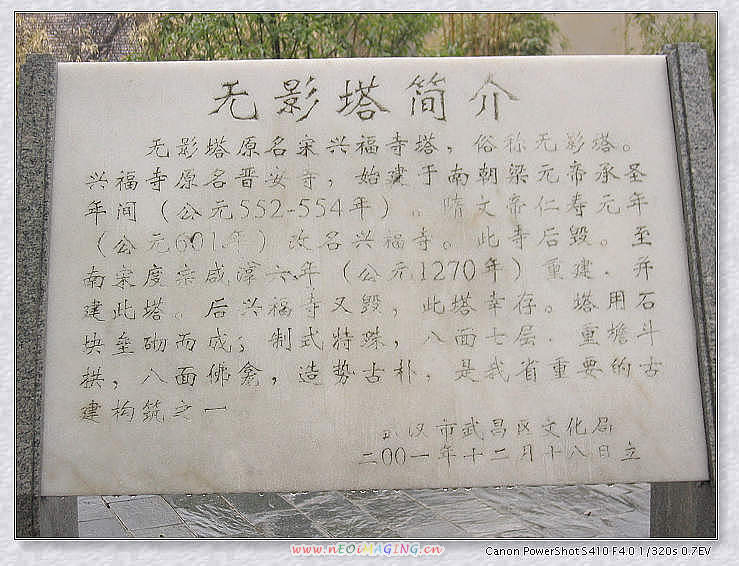 无影塔简介
无影塔原名宋兴福寺塔，俗称无影塔。
兴福寺原名晋安寺，始建于南朝梁元帝承圣
年间（公元552-554年）。隋文帝仁寿元年
（公元601年）改名兴福寺。此寺后毁。至
南宋度宗咸淳六年（公元1270年）重建．并
建此塔。后兴福寺又毁，此塔幸存。塔用石
块垒砌而成；制式特殊，八面七层．重擔斗
拱，八面佛龛，造势古朴，是我省重要的古
建构筑之一
武汉市武昌区文化局
二00一年十二月十八日立
www.nEOiMAGING.cn
Canon PowerShot S410 F4.0 1/320s 0.7EV